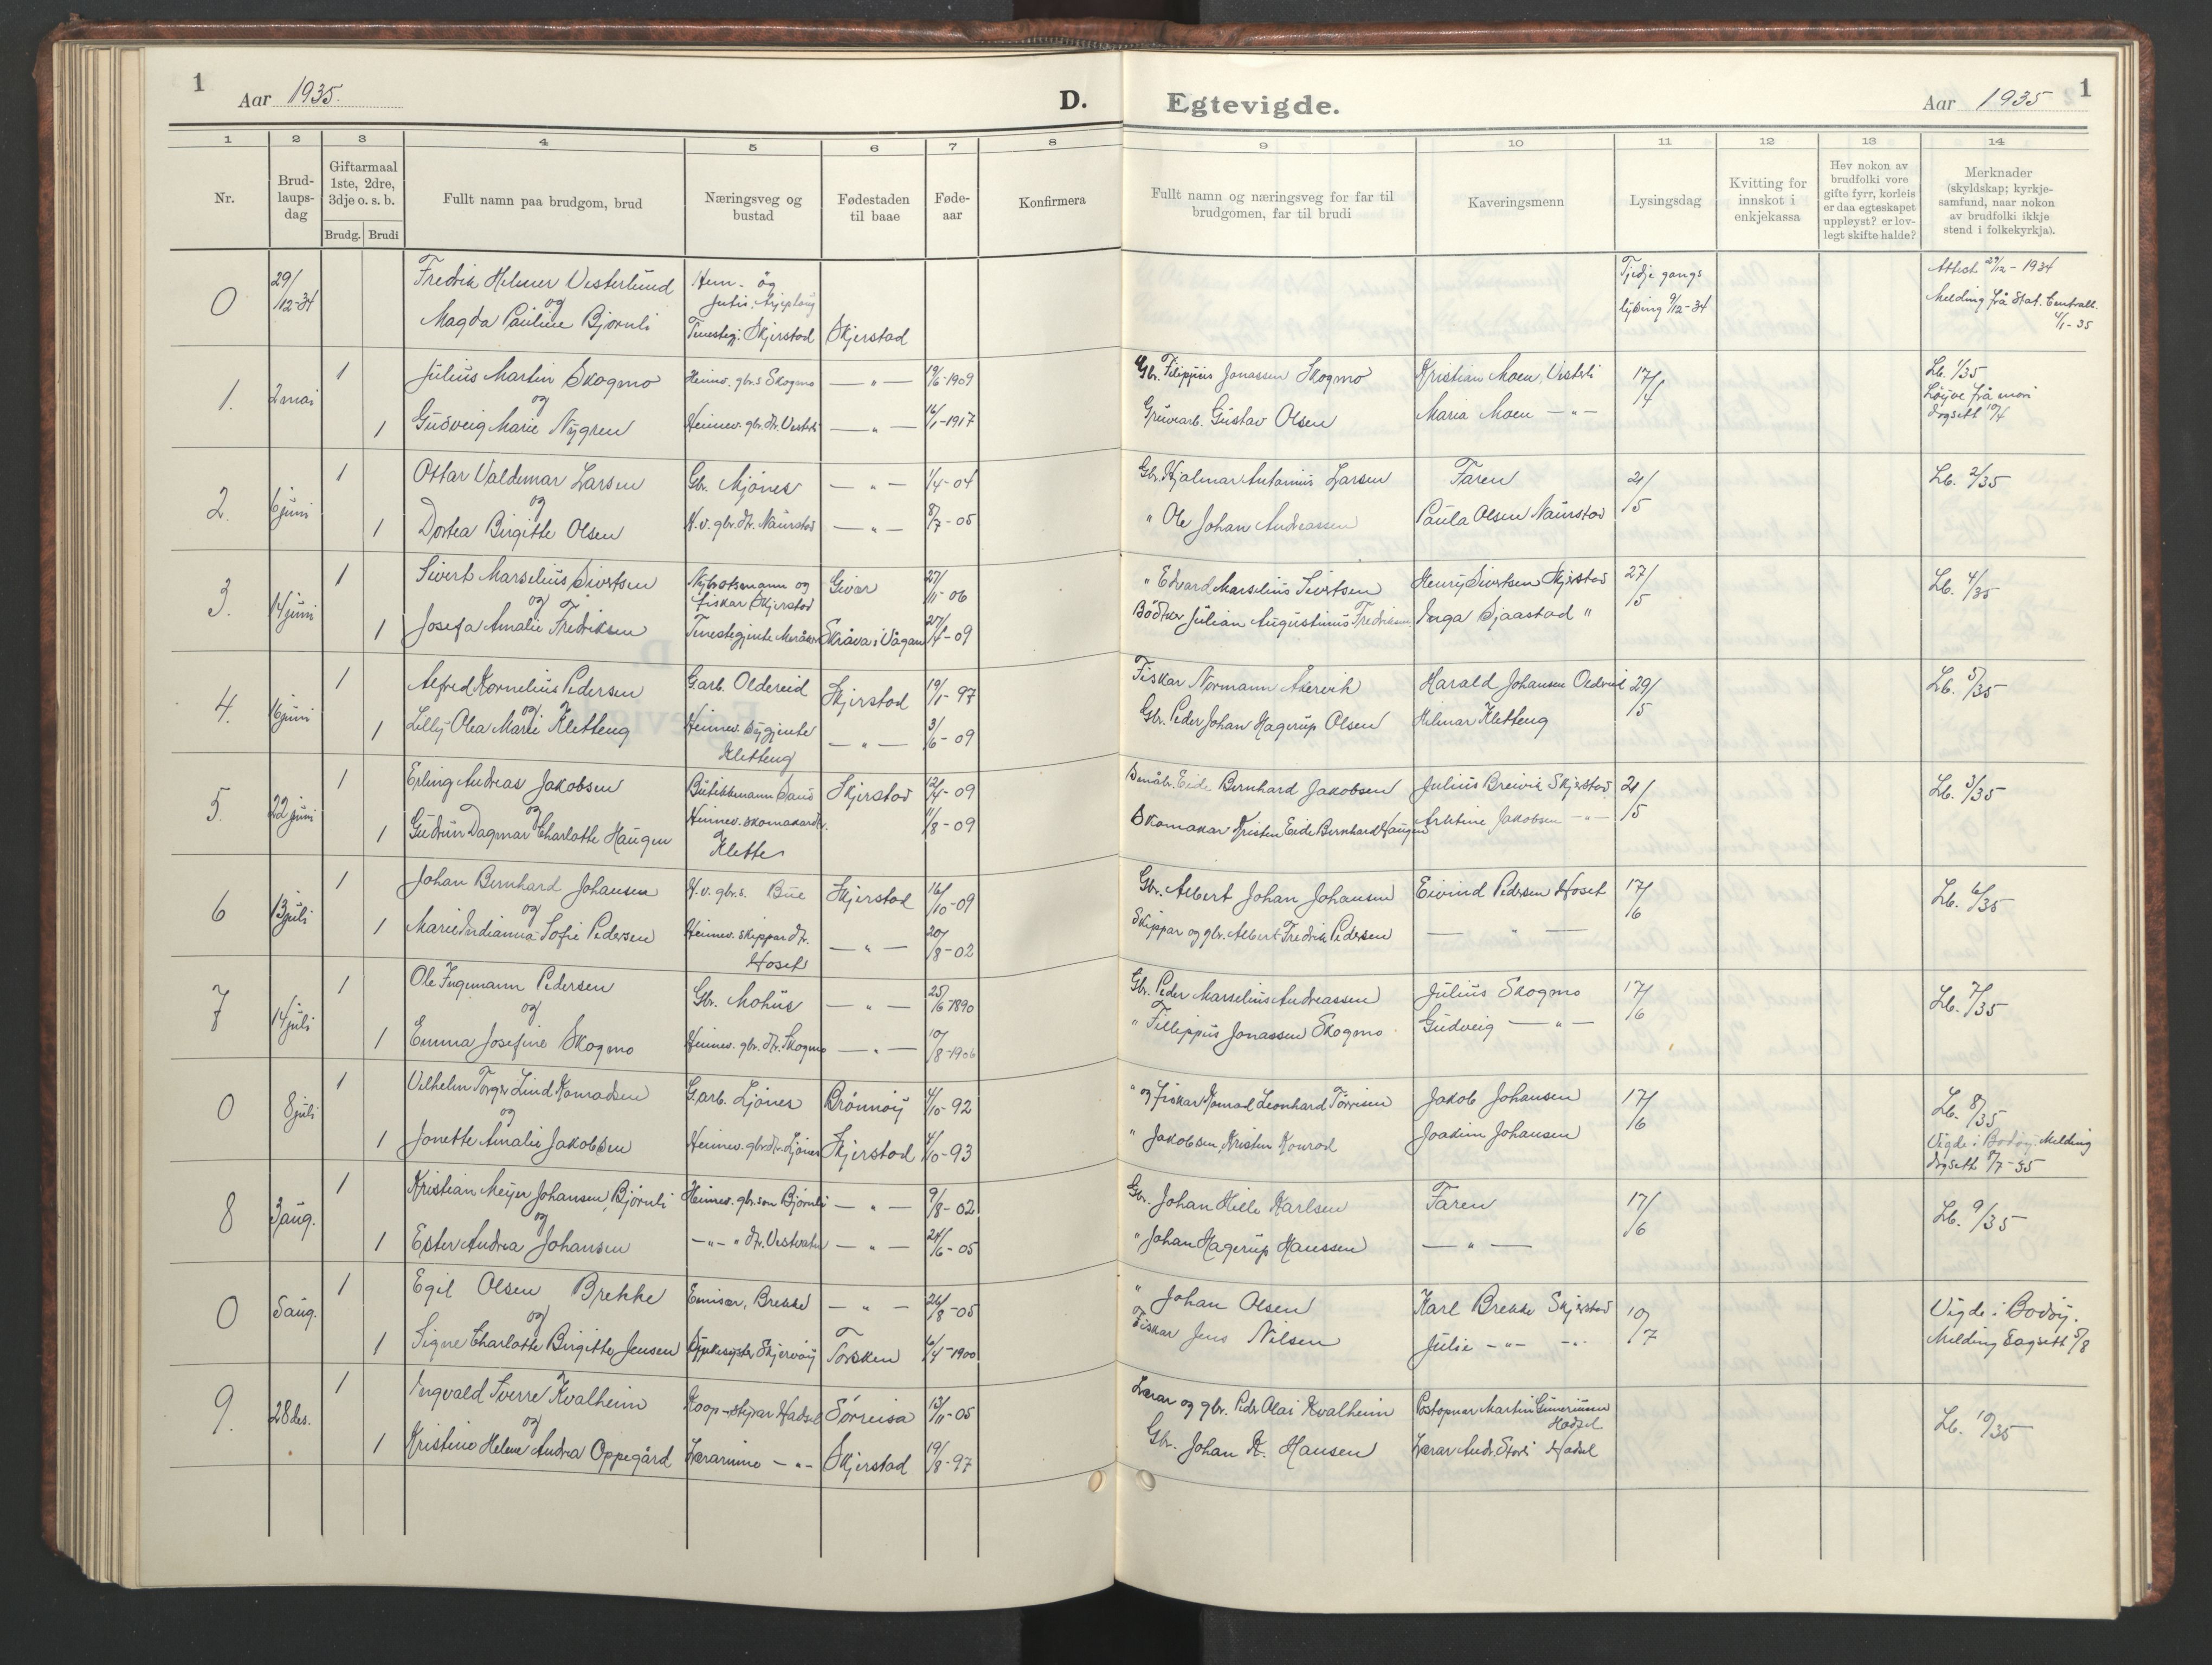 1
Aar 1935.
D.
Egtevigde.
Aar 1935
1
1 2 3 4 5 6 7 8 9 10 11 12 13 14
Nr.
Brud-
laups-
dag
Giftarmaal
1ste, 2dre,
3dje o. s. b.
Brudg. Brudi
Fullt namn paa brudgom, brud
Næringsveg og
bustad
Fødestaden
til baae
Føde-
aar
Konfirmera
Fullt namn og næringsveg for far til
brudgomen, far til brudi
Kaveringsmenn
Lysingsdag
Kvitting for
innskot i
enkjekassa
Hev nokon av
brudfolki vore
gifte fyrr, korleis
er daa egteskapet
uppløyst? er lov-
legt skifte halde?
Merknader
(skyldskap; kyrkje-
samfund, naar nokon
av brudfolki ikkje
stend i folkekyrkja).
0 29/12-34 Fredrik Helmer Vesterlund Hem. og
og
Magda Pauline Bjørnli Tenestegj. Skjerstad Skjerstad
Tjedje gangs
lysing 9/12-34
Attest 29/12-1934
Melding frå Stat. Centralb.
4/1-35
1. 2 mai 1 Julius Martin Skogmo Heimev. gbr.s Skogmo —"— 19/6-1909 Gbr. Filippius Jonassen Skogmo Kristian Moen, Vestvli 17/4 Lb. 1/35
og
1 Gudveig Marie Nygren Heimev. gbr. dtr. —"— 16/1-1917 Gruvearb. Gustav Olsen Maria Moen —"—
2. 6 juni 1 Ottar Valdemar Larsen Gbr. Mjønes —"— 1/4-04 Gbr. Hjalmar Antonius Larsen Faren 21/5 Lb. 2/35
og
1 Dortea Birgitte Olsen H.v. gbr. dtr. Naurstad —"— 8/7-05 " Ole Johan Andreassen Paula Olsen Naurstad
3. 14 juni 1 Sivert Marselius Sivertsen Nybrotsmann og Givær 27/11-06 " Edvard Marselius Sivertsen Henry Sivertsen Skjerstad 27/5 Lb. 4/35
og fiskar Skjerstad
1 Josefa Amalie Fredriksen Tenestegjente Skråva i Vågan 27/4-09 Bødker Julian Augustinus Fredriksen Inga Sjaastad "
4. 16 juni 1 Alfred Kornelius Pedersen Garb. Oldereid Skjerstad 19/1-97 Fiskar Normann Åkervik Harald Johansen Oldreid 29/5 Lb. 5/35
og
1 Lilly Olea Marie Kletteng Heimev. bygjente —"— 3/6-09 Gbr. Peder Johan Hagerup Olsen Hilmar Kletteng
Kletteng
5. 22 juni 1 Erling Andreas Jakobsen Butikkmann Skjerstad 12/4-09 Småbr. Eide Bernhard Jakobsen Julius Breivik Skjerstad 21/5 Lb. 3/35
og
1 Gudrun Dagmar Charlotte Haugen Heimev. skomakardtr. 11/8-09 Skomakar Kristen Eide Bernhard Haugen Jakobsen —"—
Klette
6 13 juli 1 Johan Bernhard Johansen H.v. gbr.s. Bue Skjerstad 16/10-09 Gbr. Albert Johan Johansen Eivind Pedersen Hoset 17/6 Lb. 6/35
og
1 Marie Indianna Sofie Pedersen Heimev. skippar dtr. —"— 20/8-02 Skippar og gbr. Albert Fredrik Pedersen —"—
Hoset
7 14 juli 1 Ole Ingemann Pedersen Gbr. Mohus —"— 25/6-1890 Gbr. Peder Marselius Andreassen Julius Skogmo 17/6 Lb. 7/35
og
1 Emma Josefine Skogmo Heimev. gbr. dtr. Skogmo —"— 10/8-1906 " Fillippus Jonassen Skogmo Gudveig —"—
0 8 juli 1 Vilhelm Torger Lind Konradsen Garb. Ljønes Brønnøy 4/10-92 " og fiskar Konrad Leonhard Jakob Johansen 17/6 Lb. 8/35
og
1 Jonette Amalie Jakobsen Heimev. gbr. dtr. Ljønes Skjerstad 4/10-93 " Jakobsen, Kristen Konrad Joakim Johansen Vigde i Bodøy. Melding
8 3 aug. 1 Kristian Meyer Johansen, Bjørnli Heimev. gbr. son Bjørnli —"— 9/8-02 Gbr. Johan Hille Karlsen Faren 17/6 Lb. 9/35
og
1 Ester Andrea Johansen —"— " dtr. Vestvatn —"— 24/6-05 " Johan Hagerup Hanssen —"—
0 5 aug. 1 Egil Olsen Brekke Emisær, Brekke —"— 26/8-05 " Johan Olsen Karl Brekke Skjerstad 10/7 Vigde i Bodøy.
og
1 Signe Charlotte Birgitte Jensen Sjukesyster Skjervøy Torsken 6/4-1900 Fiskar Jens Nilsen Julie —"— —"— Melding 5/8
9. 28 des. 1 Ingvald Sverre Kvalheim Koop-styrar Hadsel Sørreisa 13/11-05 Lærar og gbr. Peder Olai Kvalheim Postopnar Martin Lb. 10/35
og Hadsel
1 Kristine Helene Andra Oppegård Lærarinne —"— Skjerstad 19/8-97 Gbr. Johan K. Hansen Lærar Andr. Hadsel